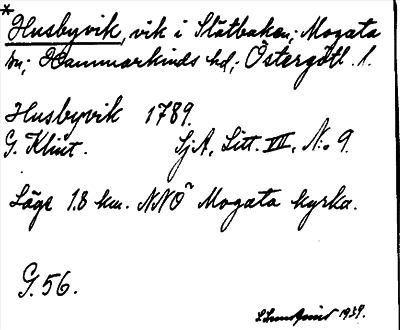 *
Husbyvik, vik i Slätbaken; Mogata
sn; Hammarkinds hd; Östergötl. l.
Husbyvik 1789.
G. Klint. SjA, Litt. VII, N:o 9.
Läge 1.8 km. NNÖ^n Mogata kyrka.
G. 56.
1939.